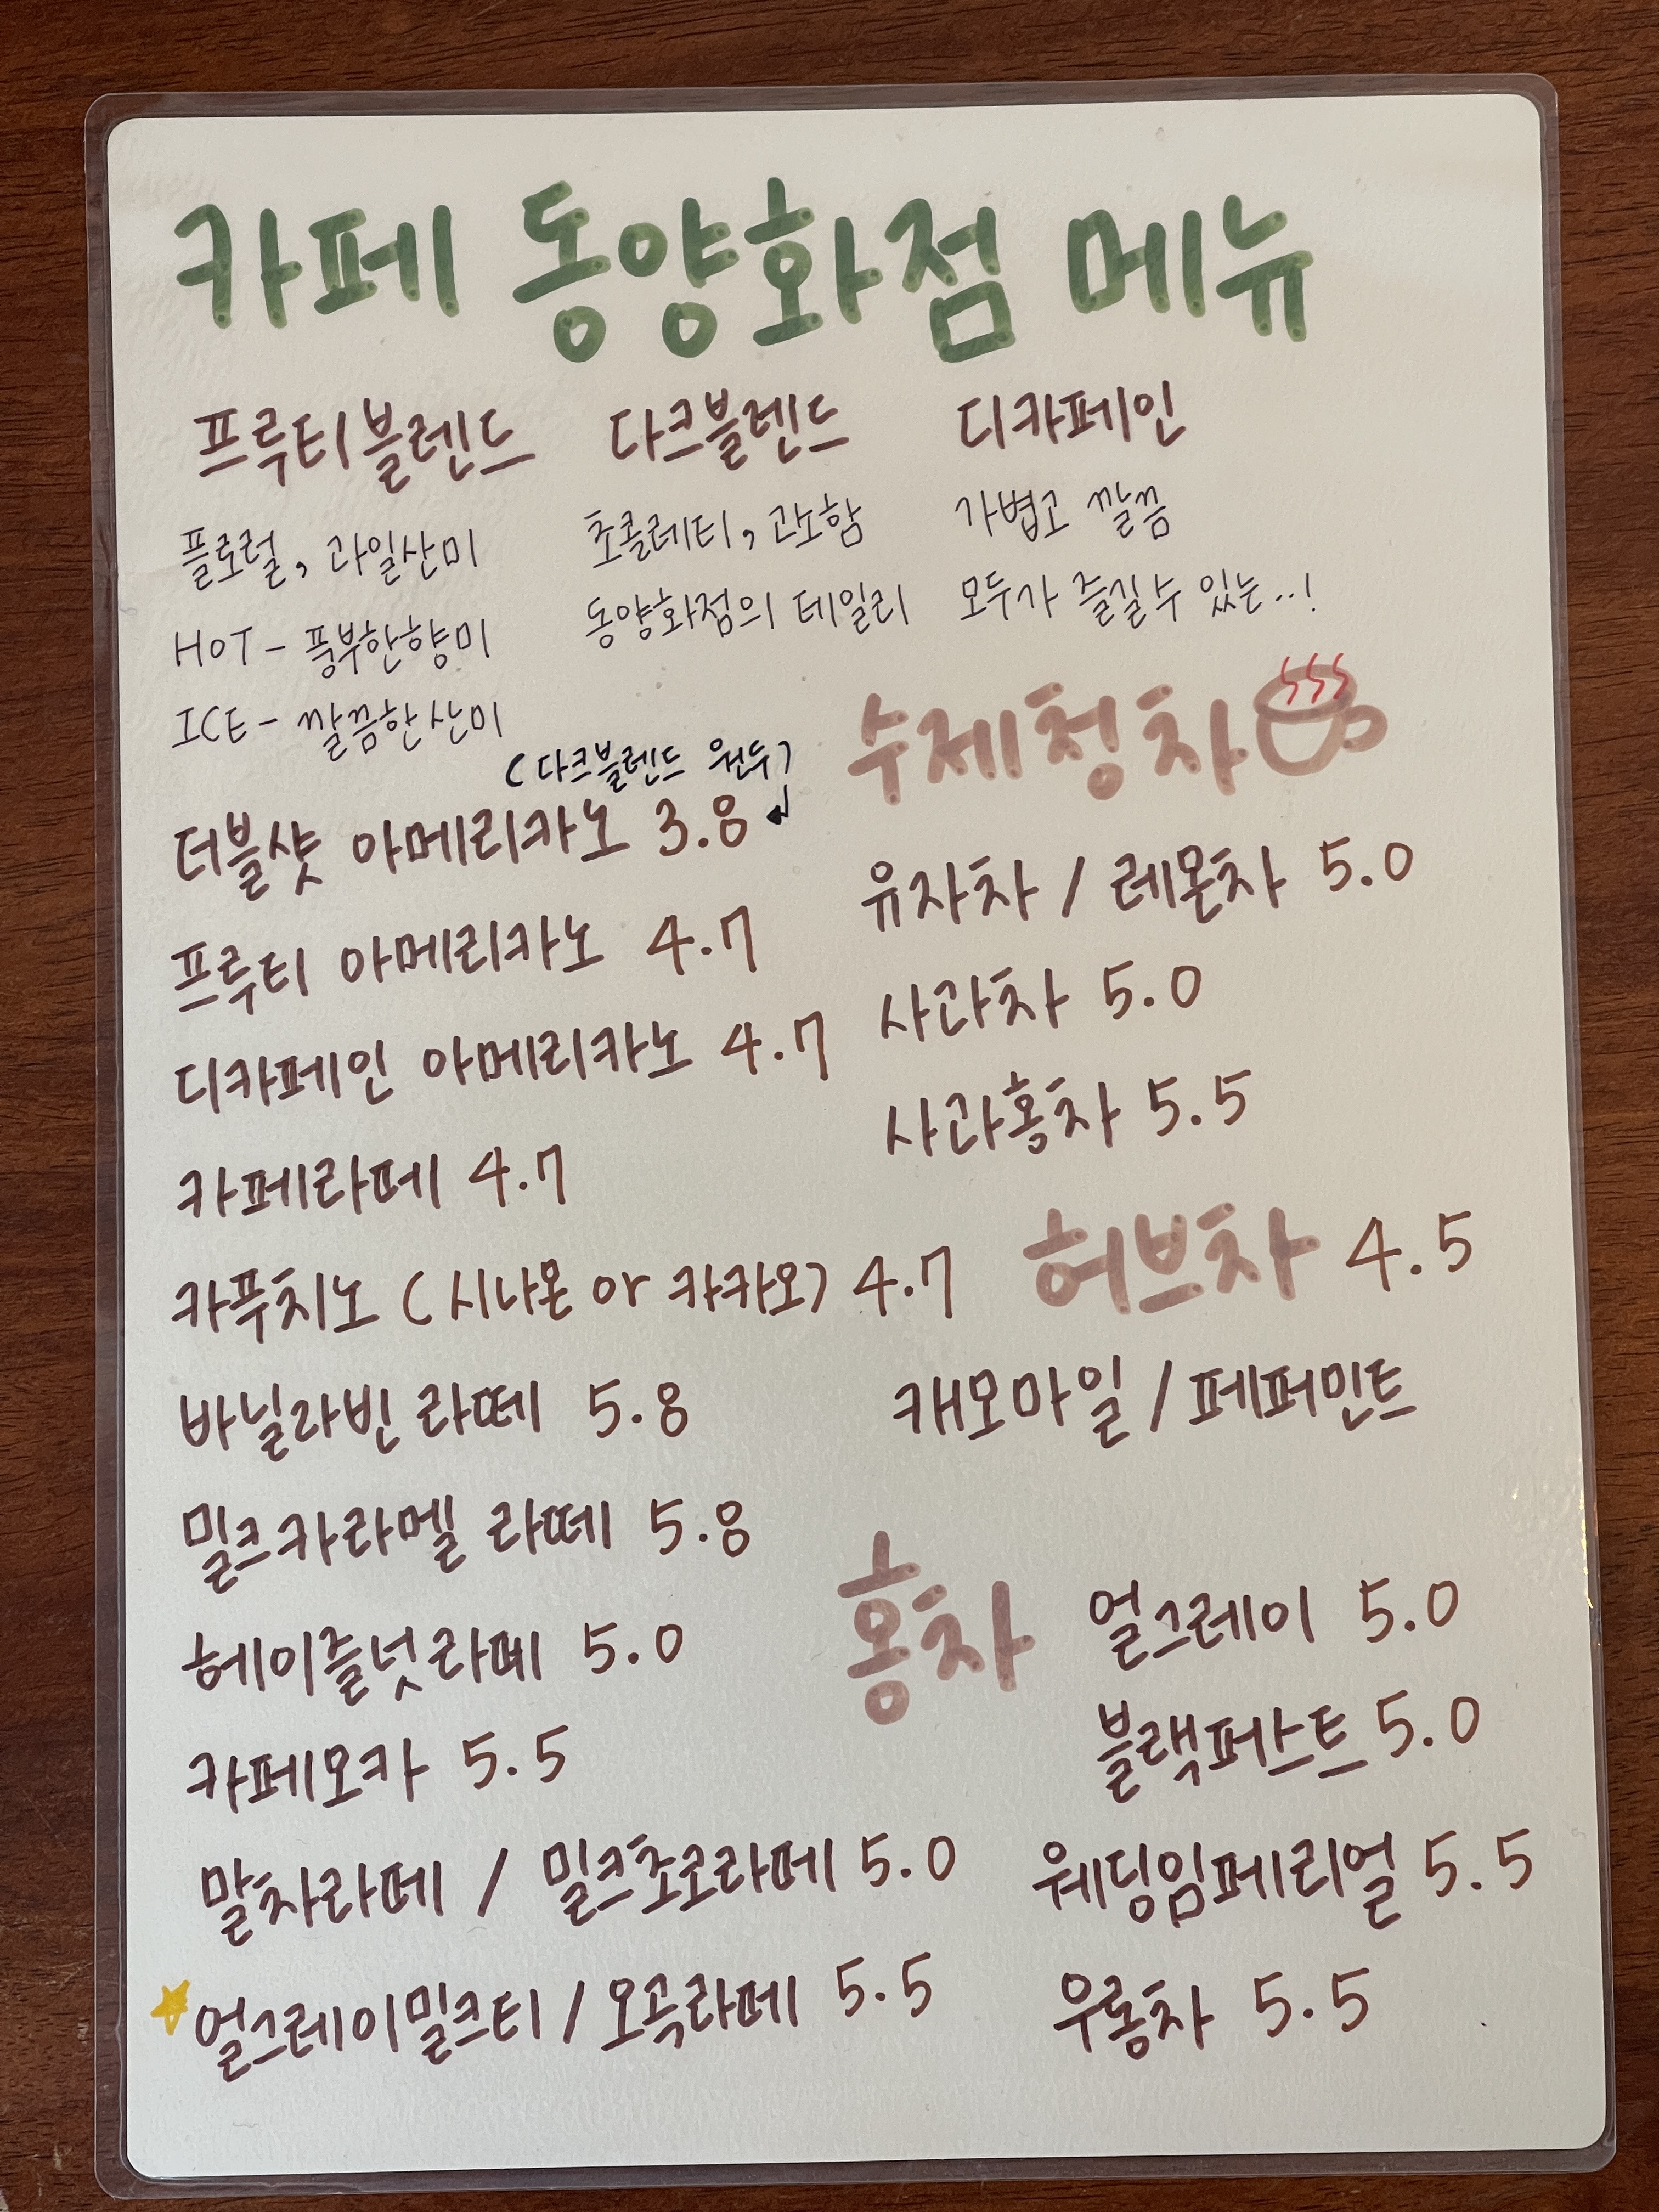 카페 동양화점 메뉴
프루티블렌드
플로럴, 과일산미
HOT - 풍부한향미
ICE - 깔끔한산미
다크블렌드
초콜레티, 고소함
동양화점의 데일리
디카페인
가볍고 깔끔
모두가 즐길수 있는..!
(다크블렌드 원두)
더블샷 아메리카노 3.8
프루티 아메리카노 4.7
디카페인 아메리카노 4.7
카페라떼 4.7
카푸치노 (시나몬 or 카카오) 4.7
바닐라빈 라떼 5.8
밀크카라멜 라떼 5.8
헤이즐넛라떼 5.0
카페모카 5.5
말차라떼 / 밀크초코라떼 5.0
얼그레이밀크티 / 오곡라떼 5.5
수제청차
유자차 / 레몬차 5.0
사과차 5.0
사과홍차 5.5
허브차 4.5
캐모마일 / 페퍼민트
홍차
얼그레이 5.0
블랙퍼스트 5.0
웨딩임페리얼 5.5
우롱차 5.5